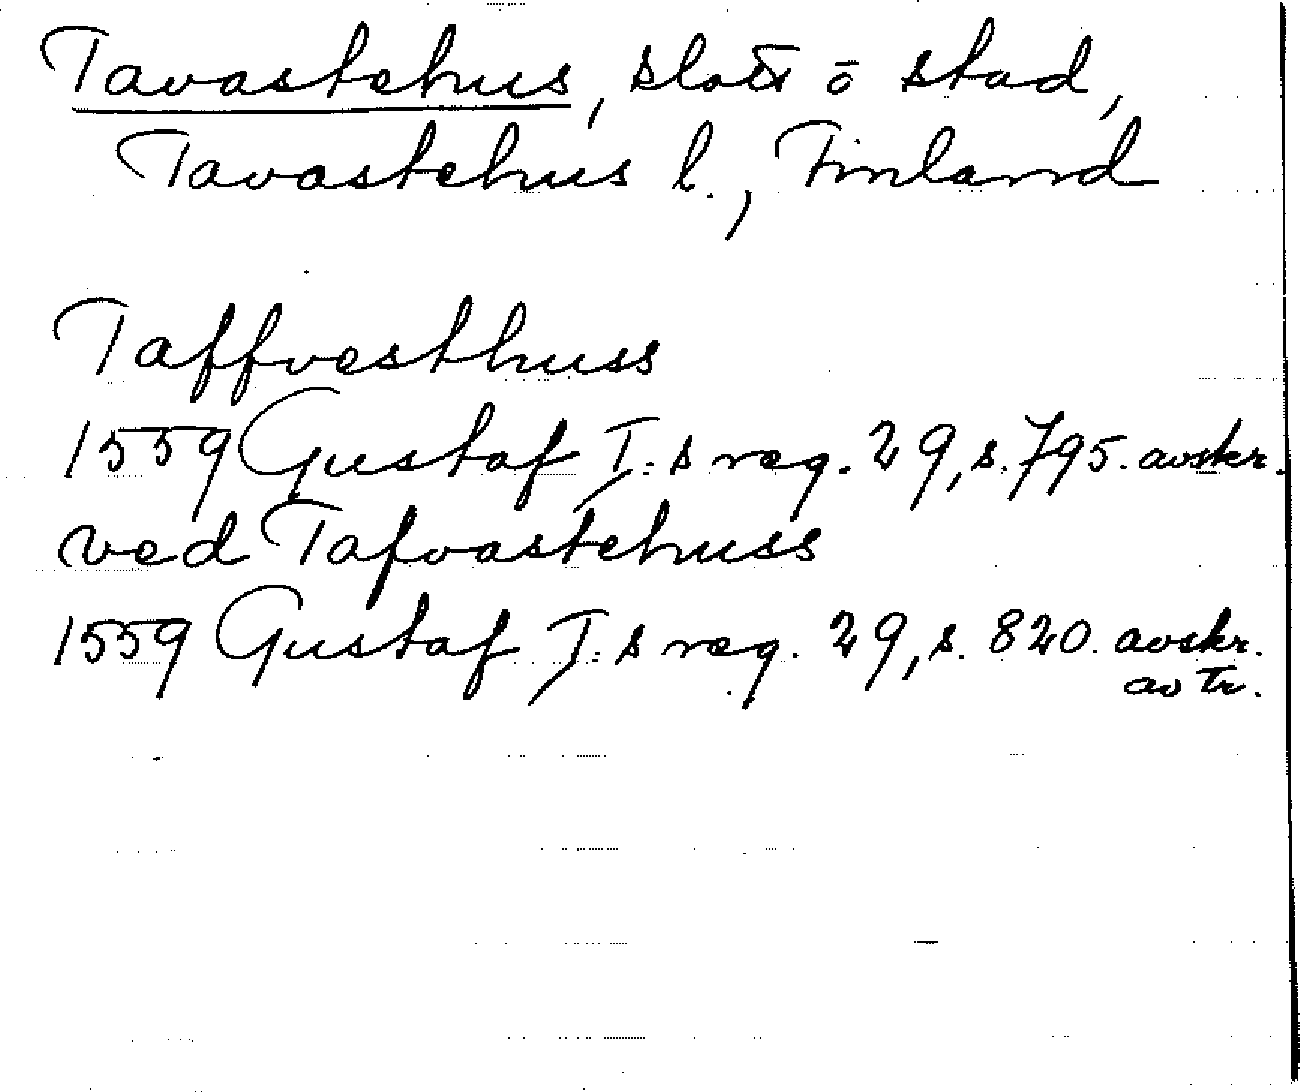 Tavastehus, slott o stad,
Tavastehus l., Finland
Taffvesthuss
1559 Gustaf I:s reg. 29, s. 795. avskr.
ved Tafvastehuss
1559 Gustaf I:s reg. 29, s. 820. avskr.
av tr.